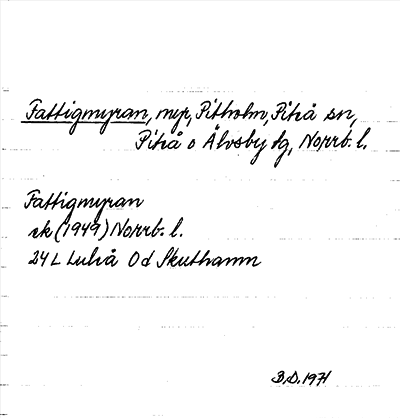 Fattigmyran, myr, Pitholm, Piteå sn,
Piteå o Älvsby tg, Norrb. l.
Fattigmyran
ek (1949) Norrb. l.
24 L Luleå 0 d Skuthamn
B.D. 1971